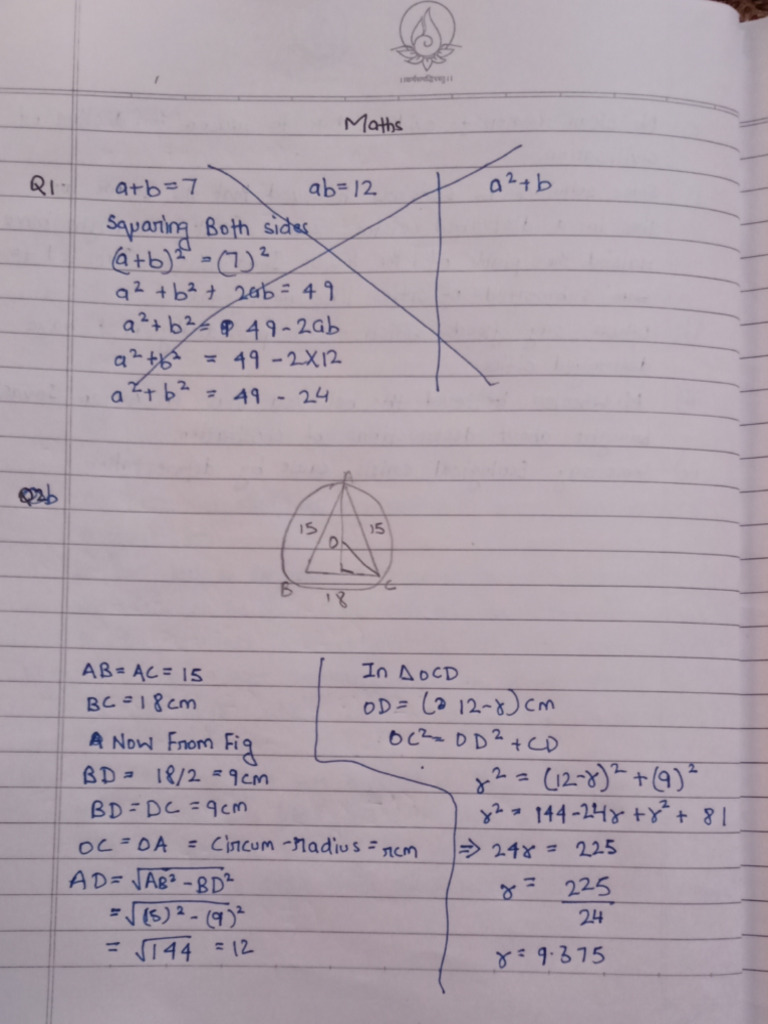 Maths
Q1. a+b=7 ab=12 a²+b
Squaring Both sides
(a+b)² = (7)²
a² + b² + 2ab = 49
a² + b² = 49 - 2ab
a² + b² = 49 - 2×12
a² + b² = 49 - 24
Q2b
A
15 15
O
B C
18
AB = AC = 15
BC = 18cm
Now From Fig
BD = 18/2 = 9cm
BD = DC = 9cm
OC = OA = Circum-radius = rcm
AD = √AB² - BD²
= √(15)² - (9)²
= √144 = 12
In △OCD
OD = (12-r) cm
OC² = OD² + CD
r² = (12-r)² + (9)²
r² = 144-24r + r² + 81
⇒ 24r = 225
r = 225
24
r = 9.375